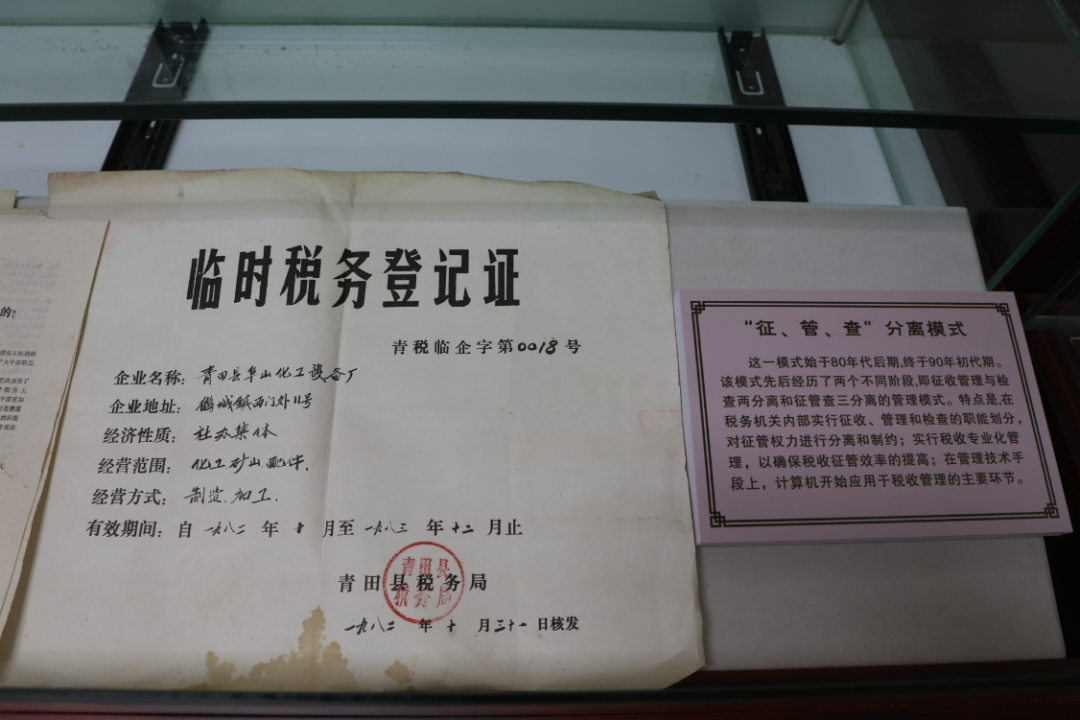 临时税务登记证
青税临企字第0018号
企业名称：青田县阜山化工设备厂
企业地址：鹤城镇西门外11号
经济性质：社办集体
经营范围：化工矿山.配件.
经营方式：制造.加工.
有效期间：自一九八二年十月至一九八三年十二月止
青田县税务局
青田县
税务局
一九八二年十月三十一日核发
“征、管、查”分离模式
这一模式始于80年代后期,终于90年初代期。
该模式先后经历了两个不同阶段,即征收管理与检
查两分离和征管查三分离的管理模式。特点是,在
税务机关内部实行征收、管理和检查的职能划分,
对征管权力进行分离和制约；实行税收专业化管
理，以确保税收征管效率的提高；在管理技术手
段上，计算机开始应用于税收管理的主要环节。